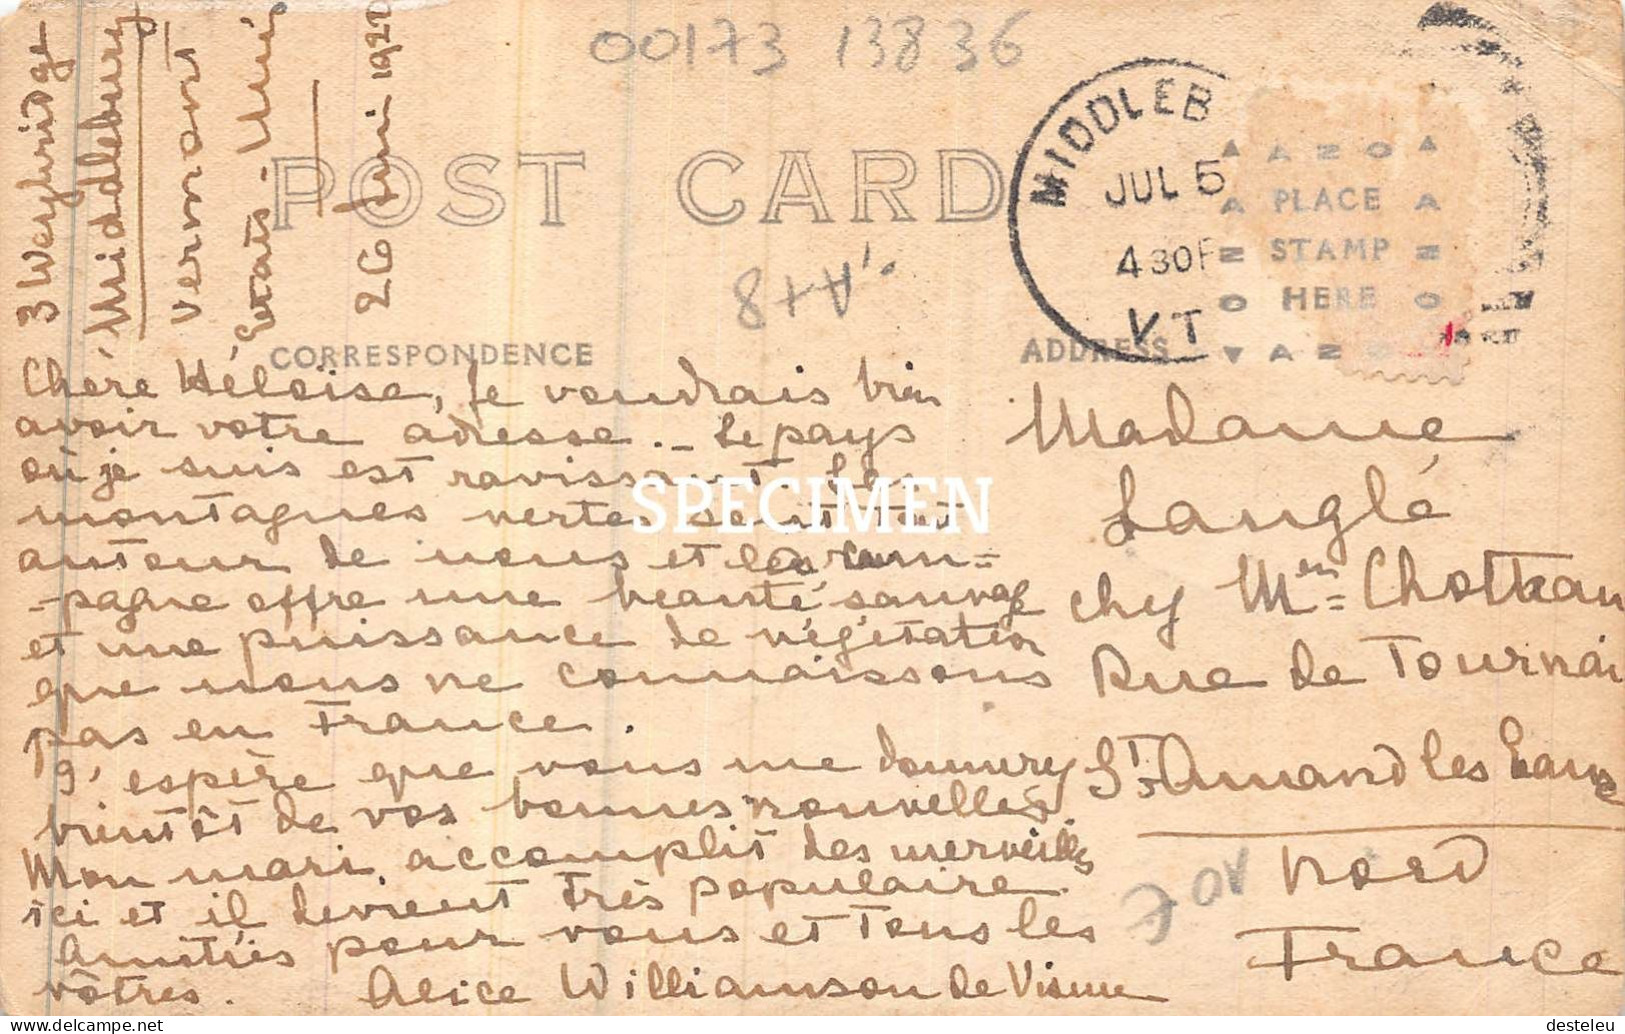 3 Weybridge
Middlebury
Vermont
Etats-Unis
26 Juin 1922
00173 13836
POST CARD
CORRESPONDENCE
ADDRESS
MIDDLEB
JUL 5
430P
VT
AZO
PLACE
STAMP
HERE
Chère Héloïse, Je voudrais bien
avoir votre adresse. - Le pays
où je suis est ravissant Les
montagnes vertes sont tout
autour de nous et la cam=
-pagne offre une beauté sauvage
et une puissance de végétation
que nous ne connaissons
pas en France.
J'espère que vous me donnerez
bientôt de vos bonnes nouvelles
Mon mari accomplit des merveilles
ici et il devient très populaire.
Amitiés pour vous et tous les
vôtres. Alice Williamson de Visme
Madame
Langlé
chez Mme Chotteau
Rue de Tournai
St Amand les Eaux
Nord
France
SPECIMEN
desteleu